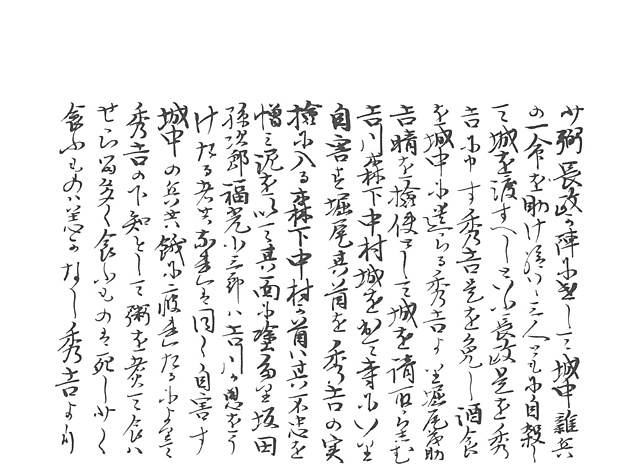 少弼長政が陣に出して城中雜兵
の一命を助け給はゞ三人ともに自殺し
て城を渡すべしといふ長政是を秀
吉に申す秀吉是を免し酒食
を城中に送らる秀吉より堀尾茂助
吉晴を檢使として城を請取らしむ
吉川森下中村城を出て寺にいり
自害す堀尾其首を秀吉の実
檢に入る森下中村が首は其不忠を
憎み泥を以て其面に塗るなり坂田
孫次郎福光小三郎は吉川が恩をう
けたる者共なれば同く自害す
城中の兵共餓に疲れたるによりて
秀吉の下知として粥を煮て食は
せらる多く食ふものは死し少く
食ふものは恙がなし秀吉より